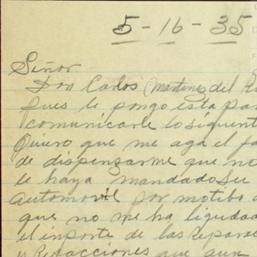 5-16-35
Señor
Don Carlos Martines del
pues le pongo esta par
comunicarle lo siguent
Quiero que me aga el fa
de dispensarme que no
le haya mandado su
automovil por motibo
que no me ha liquidad
el inporte de las repara
y refacciones que